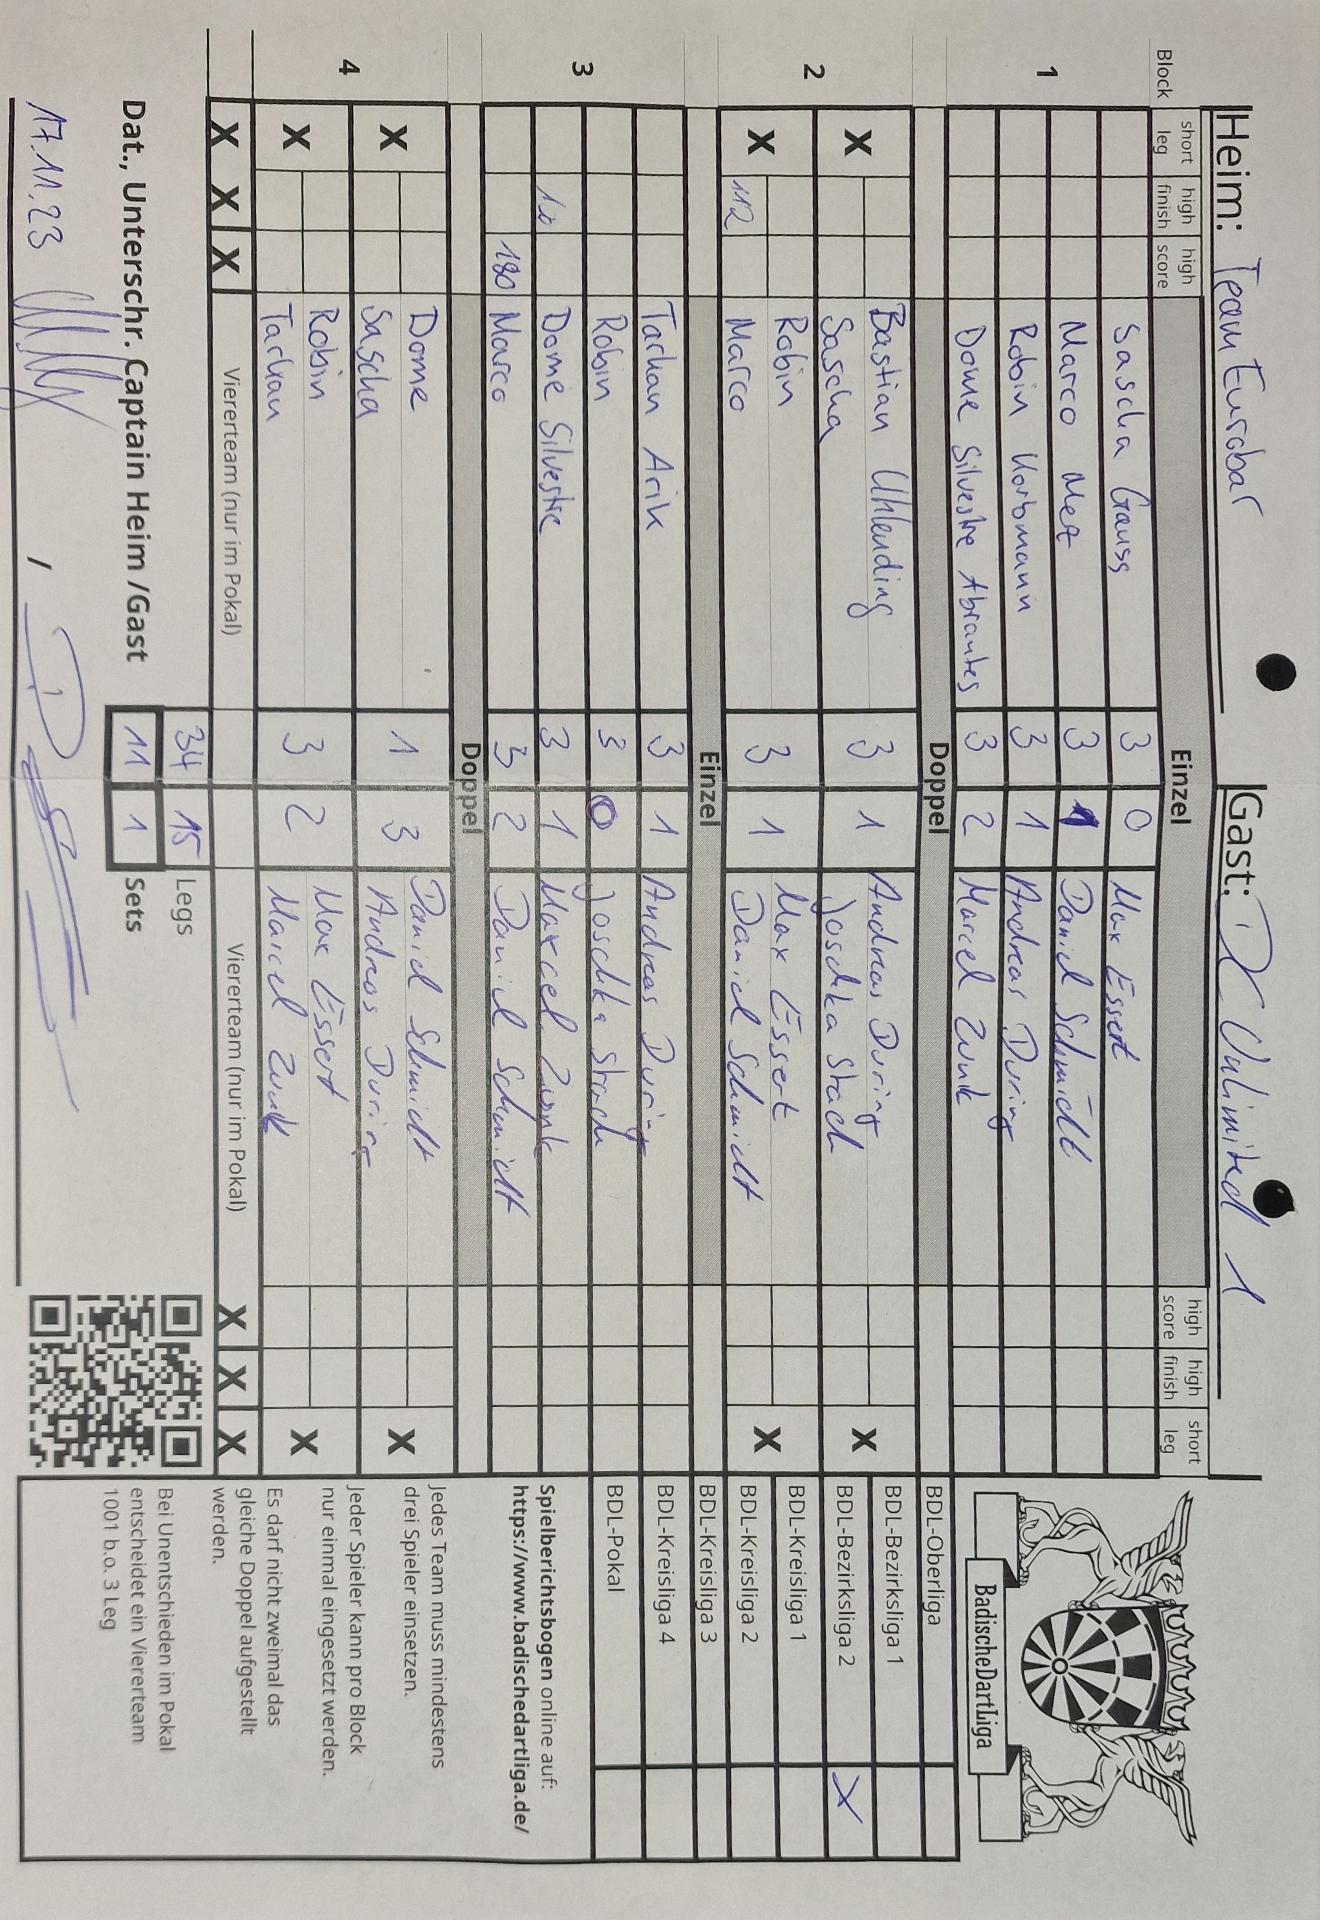 Heim: Team Eurobar Gast: DC Unlimited 1
Block short leg high finish high score Einzel high score high finish short leg
1
Sascha Gauss 3 0 Max Essert
Marco Mez 3 1 Daniel Schmidt
Robin Korbmann 3 1 Andreas During
Dome Silvestre Abrantes 3 2 Marcel Zunk
Doppel
2
X Bastian Uhlending 3 1 Andreas During X
Sascha Joschka Stach
X Robin 3 1 Max Essert X
112 Marco Daniel Schmidt
Einzel
3
Tarkan Arik 3 1 Andreas During
Robin 3 0 Joschka Stach
Dome Silvestre 3 1 Marcel Zunk
180 Marco 3 2 Daniel Schmidt
Doppel
4
X Dome 1 3 Daniel Schmidt X
Sascha Andreas During
X Robin 3 2 Max Essert X
Tarkan Marcel Zunk
X X X Viererteam (nur im Pokal) Viererteam (nur im Pokal) X X X
34 15 Legs
Dat., Unterschr. Captain Heim /Gast 11 1 Sets
17.11.23 /
BadischeDartLiga
BDL-Oberliga
BDL-Bezirksliga 1
BDL-Bezirksliga 2 X
BDL-Kreisliga 1
BDL-Kreisliga 2
BDL-Kreisliga 3
BDL-Kreisliga 4
BDL-Pokal
Spielberichtsbogen online auf:
https://www.badischedartliga.de/
Jedes Team muss mindestens
drei Spieler einsetzen.
Jeder Spieler kann pro Block
nur einmal eingesetzt werden.
Es darf nicht zweimal das
gleiche Doppel aufgestellt
werden.
Bei Unentschieden im Pokal
entscheidet ein Viererteam
1001 b.o. 3 Leg